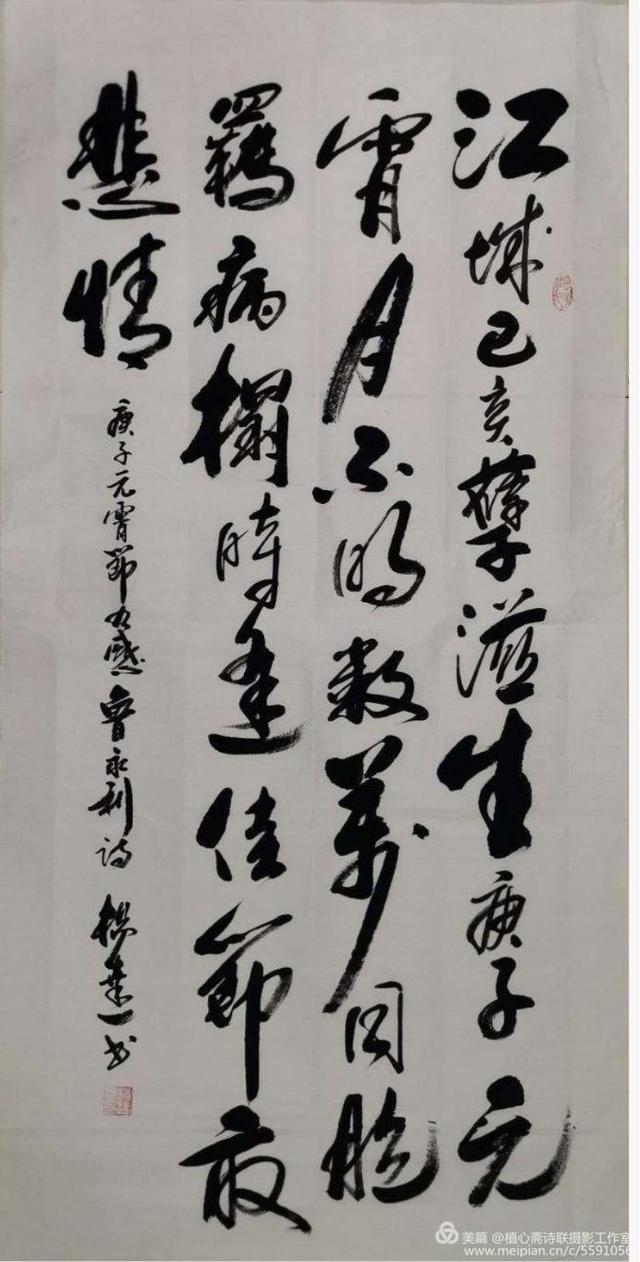 江城己亥孽滋生庚子元
宵月不明数萬同胞
羈病榻時逢佳節最
悲情
庚子元宵節有感曾永利诗 楊 一书
美篇 @植心斋诗联摄影工作室
www.meipian.cn/c/5591056